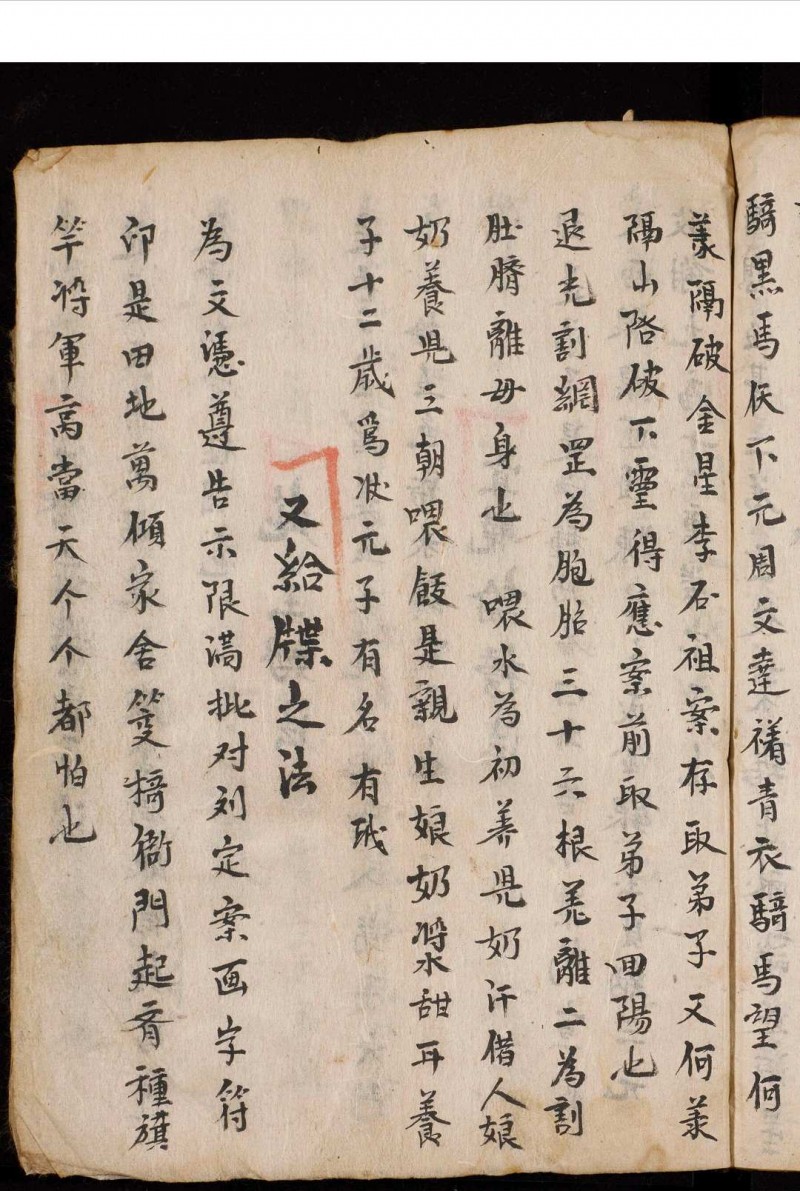 騎黑馬伩下元周文達褚青衣騎馬望何
羕隔破金星李石祖案存取弟子又何羕
隔山啓破下靈得應案前取弟子回陽也
退光割網罡為胞胎三十六根羌離二為割
肚臍離母身也 喂水為初养児奶汗借人娘
奶養児三朝喂飯是親生娘奶漿甜耳養
子十二歲爲准元子有名有
又給牒之法
為文憑遵告示限満批对列定案画字符
卯是田地萬傾家舍衙門起育種旗
竿將軍高當天个个都怕也